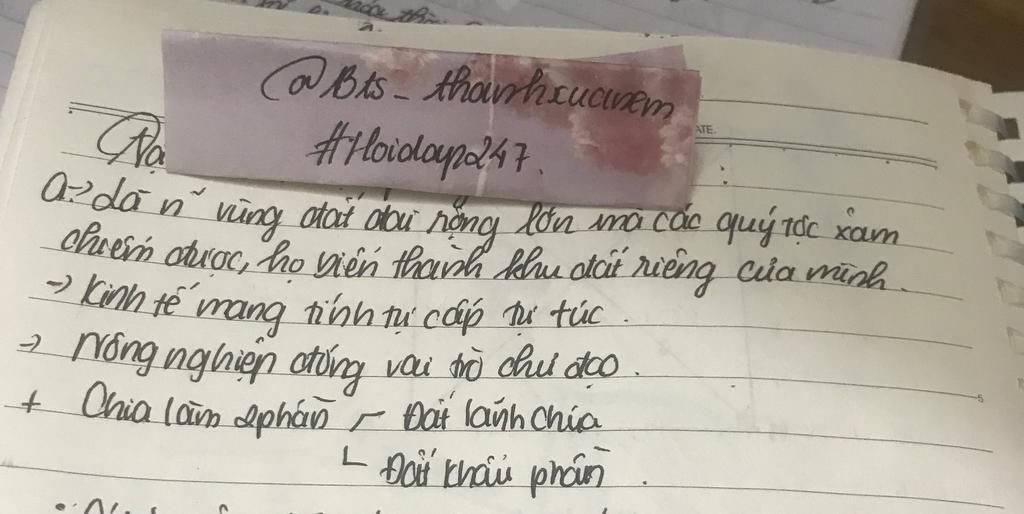 @Bts_thanhxuanem
#Hoidap247.
ATE.
a → là n~ vùng đất đai rộng lớn mà các quý tộc xâm
chiếm được, họ biến thành khu đất riêng của mình.
→ Kinh tế mang tính tự cấp tự túc.
→ Nông nghiệp đóng vai trò chủ đạo.
+ Chia làm 2 phần - Đất lãnh chúa
└ Đất khẩu phần.
5